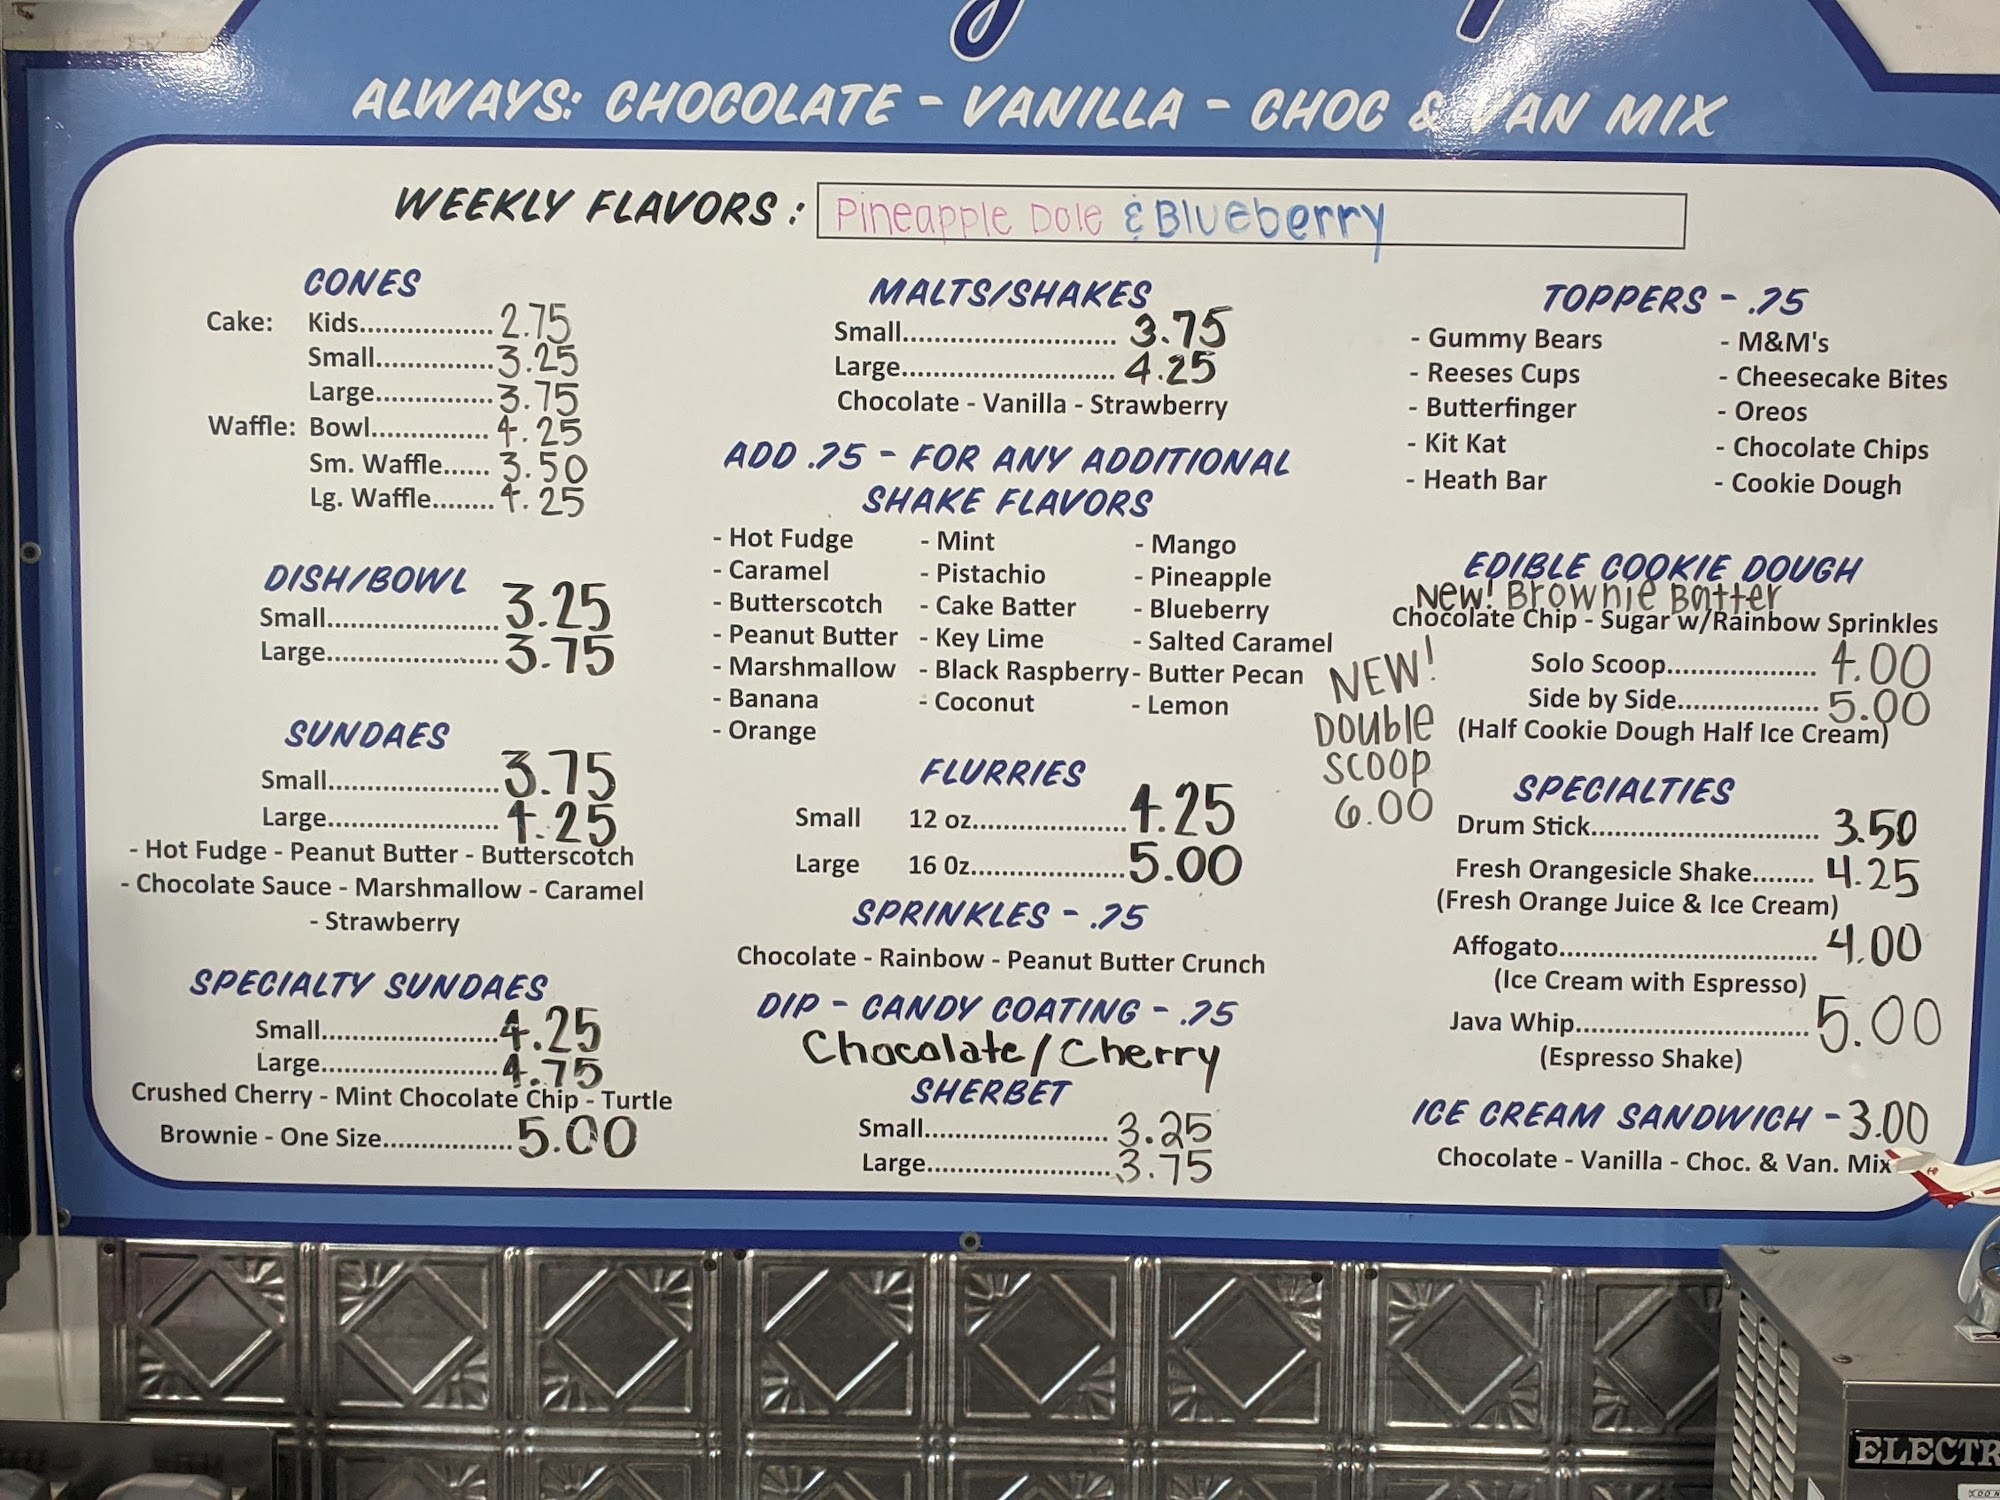 ALWAYS: CHOCOLATE - VANILLA - CHOC & VAN MIX
WEEKLY FLAVORS: Pineapple Dole & Blueberry
CONES
Cake: Kids................. 2.75
Small............... 3.25
Large............... 3.75
Waffle: Bowl............... 4.25
Sm. Waffle...... 3.50
Lg. Waffle........ 4.25
DISH/BOWL
Small...................... 3.25
Large...................... 3.75
SUNDAES
Small...................... 3.75
Large...................... 4.25
- Hot Fudge - Peanut Butter - Butterscotch
- Chocolate Sauce - Marshmallow - Caramel
- Strawberry
SPECIALTY SUNDAES
Small...................... 4.25
Large...................... 4.75
Crushed Cherry - Mint Chocolate Chip - Turtle
Brownie - One Size................ 5.00
MALTS/SHAKES
Small........................... 3.75
Large........................... 4.25
Chocolate - Vanilla - Strawberry
ADD .75 - FOR ANY ADDITIONAL
SHAKE FLAVORS
- Hot Fudge - Mint - Mango
- Caramel - Pistachio - Pineapple
- Butterscotch - Cake Batter - Blueberry
- Peanut Butter - Key Lime - Salted Caramel
- Marshmallow - Black Raspberry - Butter Pecan
- Banana - Coconut - Lemon
- Orange
FLURRIES
Small 12 oz.................... 4.25
Large 16 Oz.................... 5.00
SPRINKLES - .75
Chocolate - Rainbow - Peanut Butter Crunch
DIP - CANDY COATING - .75
Chocolate/Cherry
SHERBET
Small....................... 3.25
Large....................... 3.75
TOPPERS - .75
- Gummy Bears - M&M's
- Reeses Cups - Cheesecake Bites
- Butterfinger - Oreos
- Kit Kat - Chocolate Chips
- Heath Bar - Cookie Dough
EDIBLE COOKIE DOUGH
New! Brownie Batter
Chocolate Chip - Sugar w/Rainbow Sprinkles
Solo Scoop................... 4.00
Side by Side.................. 5.00
(Half Cookie Dough Half Ice Cream)
NEW!
Double
Scoop
6.00
SPECIALTIES
Drum Stick............................. 3.50
Fresh Orangesicle Shake........ 4.25
(Fresh Orange Juice & Ice Cream)
Affogato................................. 4.00
(Ice Cream with Espresso)
Java Whip.............................. 5.00
(Espresso Shake)
ICE CREAM SANDWICH - 3.00
Chocolate - Vanilla - Choc. & Van. Mix